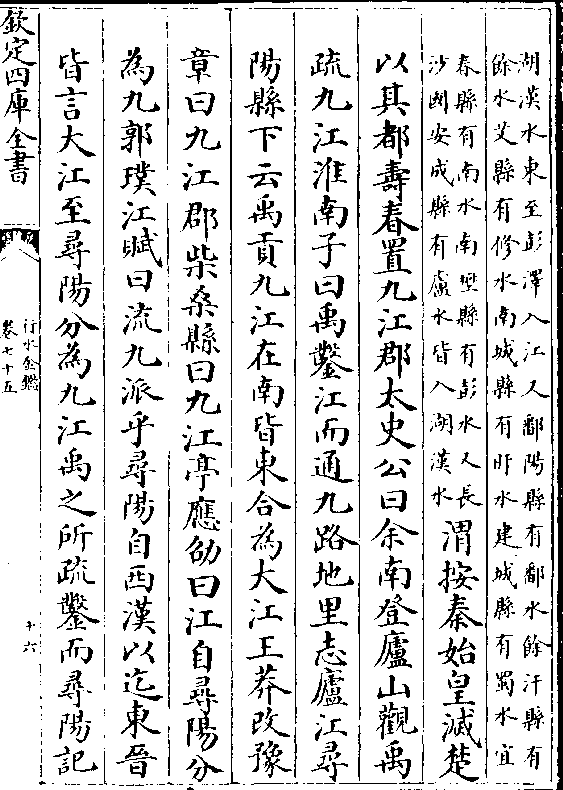 湖漢水東至彭澤入江又鄱陽縣有鄱水餘汗縣有
餘水艾縣有修水南城縣有盱水建成縣有蜀水宜
春縣有南水南壄縣有彭水又長
沙國安成縣有廬水皆入湖漢水
渭按秦始皇滅楚
以其都壽春置九江郡太史公曰余南登廬山觀禹
疏九江淮南子曰禹鑿江而通九路地里志廬江尋
陽縣下云禹貢九江在南皆東合為大江王莽改豫
章曰九江郡柴桑縣曰九江亭應劭曰江自尋陽分
為九郭璞江賦曰流九派乎尋陽自西漢以迄東晉
皆言大江至尋陽分為九江禹之所疏鑿而尋陽記
欽定四庫全書
行水金鑑
卷七十五
十六